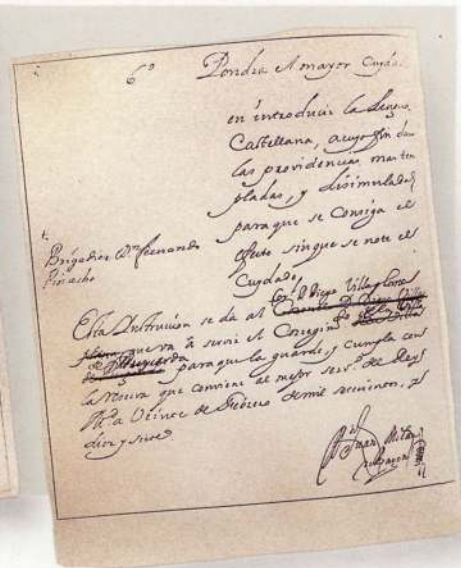 6º Pondra el mayor Cuyda
en introducir la lengua
Castellana, a cuyo fin da
las providencias mas tem
pladas, y disimuladas
para que se consiga el
efeto sin que se note el
Cuydado
Brigadier Dn fernando
Pinacho
Cor.l D Diego Villaplana
Esta Instruccion se da al Coronel D. Diego Villa
plana que va à servir el Corregim.to
para que la guarde, y cumpla con
la reserva que conviene al mejor serv.º del Rey
M.d a Veinte de Febrero de mil setecientos, y
diez y siete
Dn Juan Milan
de Aragon